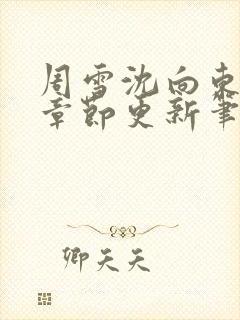 周雪沈向东
章节更新笔
卿天天